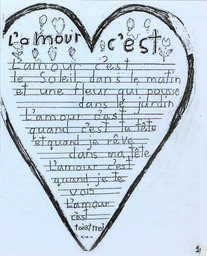 L'amour c'est
L'amour c'est
le Soleil dans le matin
et une fleur qui pousse
dans le jardin
L'amour c'est
quand c'est la fête
et quand je rêve
dans ma tête
L'amour c'est
quand je te
vois
L'amour
c'est
toi et moi